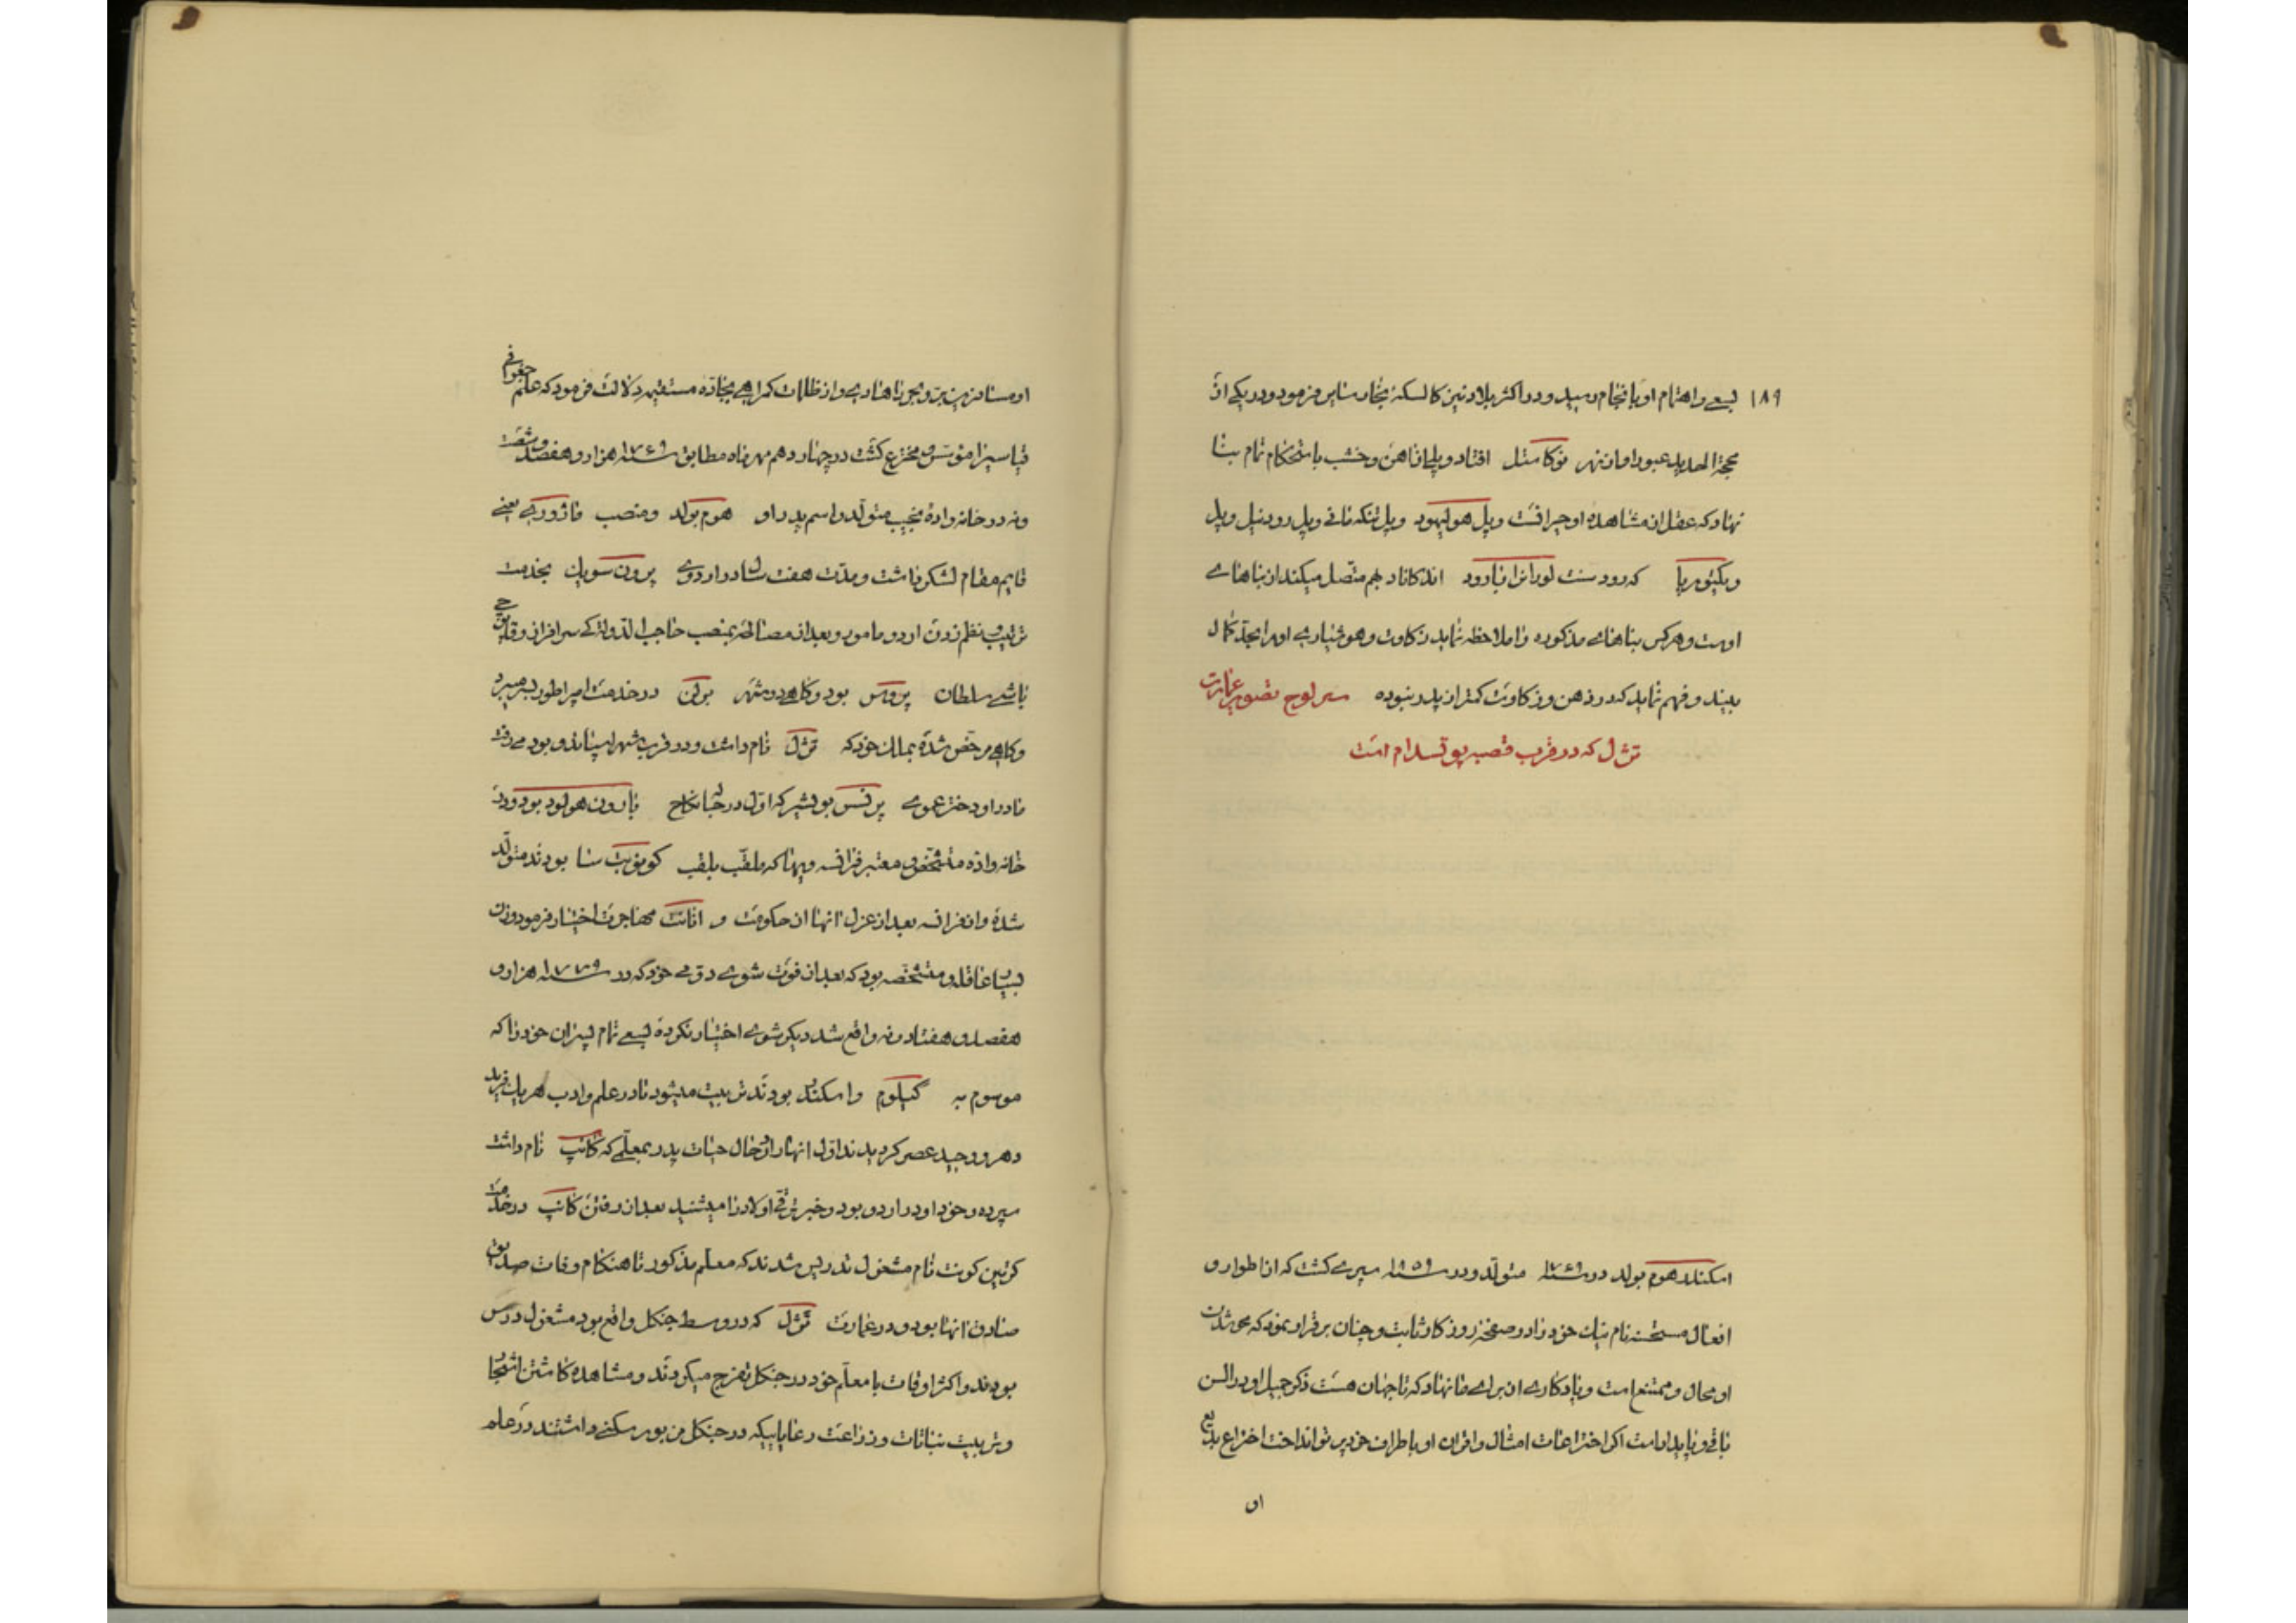 ۱۸۹ لسعی و اهتمام او بانجام رسید و در اکثر بلاد نیز کالسکهٔ بخار سایر فرمود و در یکی از
محجة الحدید عبور او از نهر نوکاستل افتاد و پلی از اهن و خشب باستحکام تمام بنا
نهاد که عقل از مشاهده او حیران است و پل هولیهود و پل تنکه نانی و پل رود نیل و پل
ویکتوریا که رود سنت لورانرا بارود اند کانادا بهم متصل میکند از بناهای
اوست و هر کس بناهای مذکوره را ملاحظه نماید زکاوت و هوشیاری او را بحد کمال
بیند و فهم نماید که در ذهن و زکاوت کمتر از پدر نبوده سر لوح تصویر عمارت
تژل که در قرب قصبه پوتسدام است
اسکندر هومبولد در سنه ۱۷۶۹ متولد و در سنه ۱۸۵۹ سپری کشت که از اطوار و
افعال مستحسنه نام نیک خود را در صفحه روزکار ثابت و چنان برقرار نمود که محو شدن
او محال و ممتنع است و یادکاری از برای ما نهاد که تا جهان هست ذکر جمیل او در السن
باقی و پایدار است اکر اختراعات امثال و اقران او باطراف خود پرتو انداخت اختراع بدیع
او
او مسافرین بر و بحر را هادی و از ظلمات کمراهی بجاده مستقیم دلالت فرمود که علم جغرافی
قیاسیرا مؤسس و مخترع کشت در چهاردهم مهر ماه مطابق سنه ۱۷۶۹ هزار و هفتصد و شصت
و نه در خانواده نجیب متولد و اسم پدر او هومبولد و منصب ماژوری یعنی
قایم مقام لشکر داشت و مدت هفت سال در اردوی پرون سویک بخدمت
ترتیب و نظم زدن اردو مامور و بعد از مصالحه بمنصب حاجب الدولهٔکی سرافراز و قاپوچی
باشی سلطان پروس بود و کاهی در شهر برلن در خدمت امپراطور بسر میبرد
و کاهی مرخص شده بملک خود که تژل نام داشت و در قرب شهر اسپاندو بود میرفت
مادر او دختر عموی پرنسس بولشیر که اول در حباله نکاح بارون هولود بود و در
خانواده متشخص و معتبر فرانسه و بهما که ملقب بلقب کومونیت سنا بودند متولد
شده و از فرانسه بعد از عزل انها از حکومت و انانت مهاجرت اختیار فرمود و زن
بسیار عاقله و متشخصه بود که بعد از فوت شوی دومی خود که در سنه ۱۷۷۹ هزار و
هفصد و هفتاد و نه واقع شد دیکر شوی اختیار نکرده بسعی تمام پسران خود را که
موسوم به کیلوم و اسکندر بودند تربیت مینمود تا در علم و ادب هر یک فرید
دهر و وحید عصر کردیدند اول انها را در حال حیات پدر بمعلمی که کانپ نام داشت
سپرده و خود او در اردو بود و خبر ترقی اولاد را میشنید بعد از رفتن کانپ در خدمت
کرتین کونت نام مشغول تدریس شدند که معلم مذکور تا هنکام وفات صدیق
صادق انها بود و در عمارت تژل که در وسط جنکل واقع بود مشغول درس
بودند و اکثر اوقات با معلم خود در جنکل تفرج میکردند و مشاهده کاشتن اشجار
و تربیت نباتات و زراعت رعایاییکه در جنکل مزبور سکنی داشتند در علم